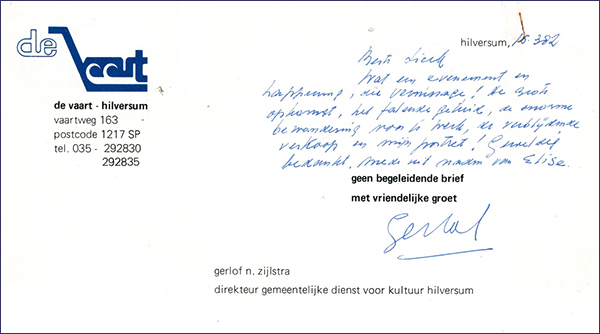 de Vaart
hilversum, 16.3.82
Beste Sierk
Wat een evenement en
happening, die vernissage! De grote
opkomst, het falende geluid, de enorme
bewondering voor je werk, de verblijdende
verkoop en mijn portret! Geweldig
bedankt, mede uit naam van Elise.
de vaart - hilversum
vaartweg 163
postcode 1217 SP
tel. 035 - 292830
292835
geen begeleidende brief
met vriendelijke groet
Gerlof
gerlof n. zijlstra
direkteur gemeentelijke dienst voor kultuur hilversum